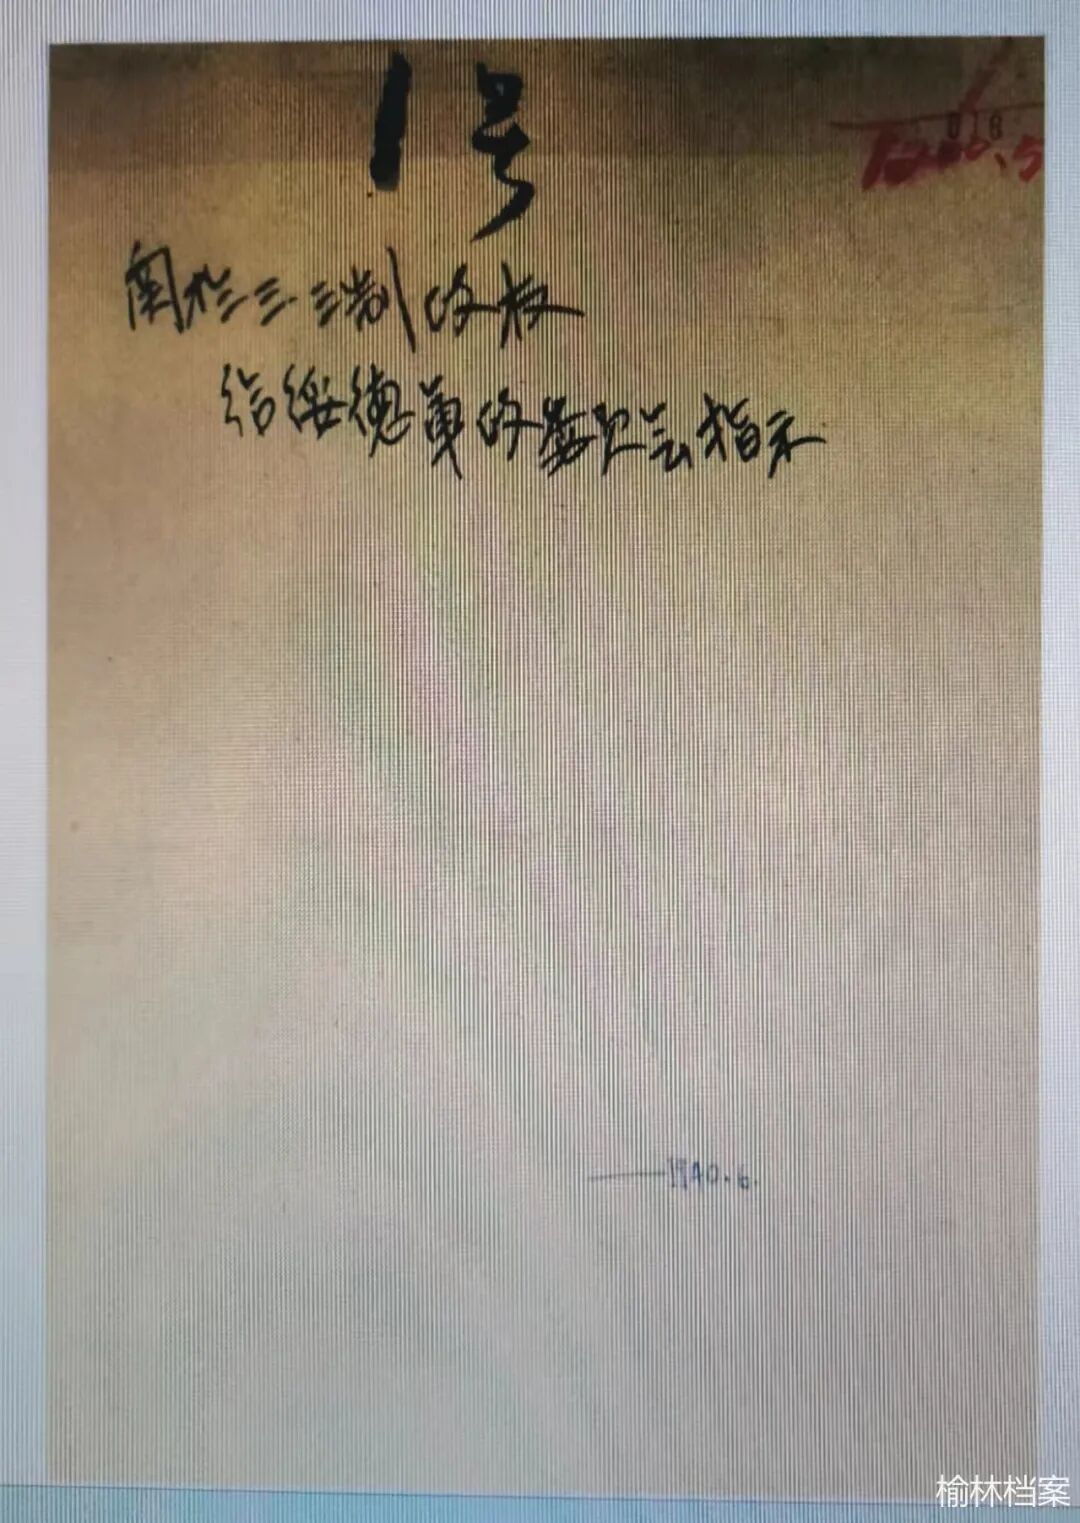 1号
018
关于三三制政权
给绥德军政委员会指示
——1940.6.
榆林档案